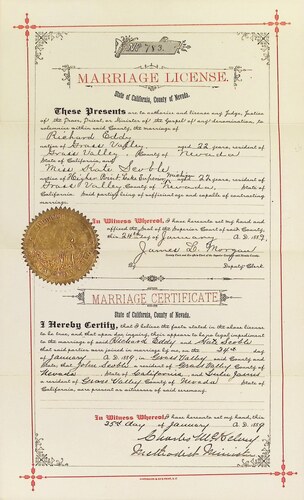 No. 783.
MARRIAGE LICENSE.
State of California, County of Nevada.
These Presents are to authorize and license any Judge, Justice
of the Peace, Priest, or Minister of the Gospel of any denomination, to
solemnize within said County, the marriage of
Richard Eddy
native of Grass Valley, aged 22 years, resident of
Grass Valley, County of Nevada
State of California, and
Miss Kate Scoble
native of Lake Superior Michigan 22 years, resident of
Grass Valley County of Nevada, State of
California. Said parties being of sufficient age and capable of contracting
marriage.
In Witness Whereof, I have hereunto set my hand and
affixed the Seal of the Superior Court of said County,
this 24th day of January A. D. 1889
James L. Morgan
County Clerk
By
Deputy Clerk.
MARRIAGE CERTIFICATE
State of California, County of Nevada.
I Hereby Certify, that I believe the facts stated in the above license
to be true, and that upon due inquiry, there appears to be no legal impediment
to the marriage of said Richard Eddy and Kate Scoble
that said parties were joined in marriage by me, on the 24th day
of January A. D. 1889, in Grass Valley, said County and
State; that John Scoble a resident of Grass Valley County of
Nevada State of California, and
a resident of Grass Valley County of Nevada State of
California, were present as witnesses of said ceremony.
In Witness Whereof, I have hereunto set my hand, this
25th day of January A. D. 1889
Methodist Minister